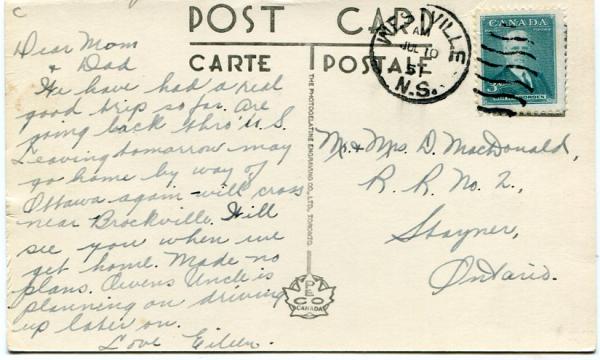 C
POST CARD
CARTE POSTALE
WESTVILLE
AM
JUL 10
51
N.S.
CANADA
POSTAGE POSTES
3
SIR R.L. BORDEN
Dear Mom
& Dad
We have had a real
good trip so far. Are
going back thro' U.S.
Leaving tomorrow may
go home by way of
Ottawa again - will cross
near Brockville. Will
see you when we
get home. Made no
plans. Owens Uncle is
planning on driving
up later on.
Love Eileen.
THE PHOTOGELATINE ENGRAVING CO., LTD. TORONTO.
PECO
CANADA
Mr. & Mrs. D. MacDonald,
R. R. No. 2,
Stayner,
Ontario.